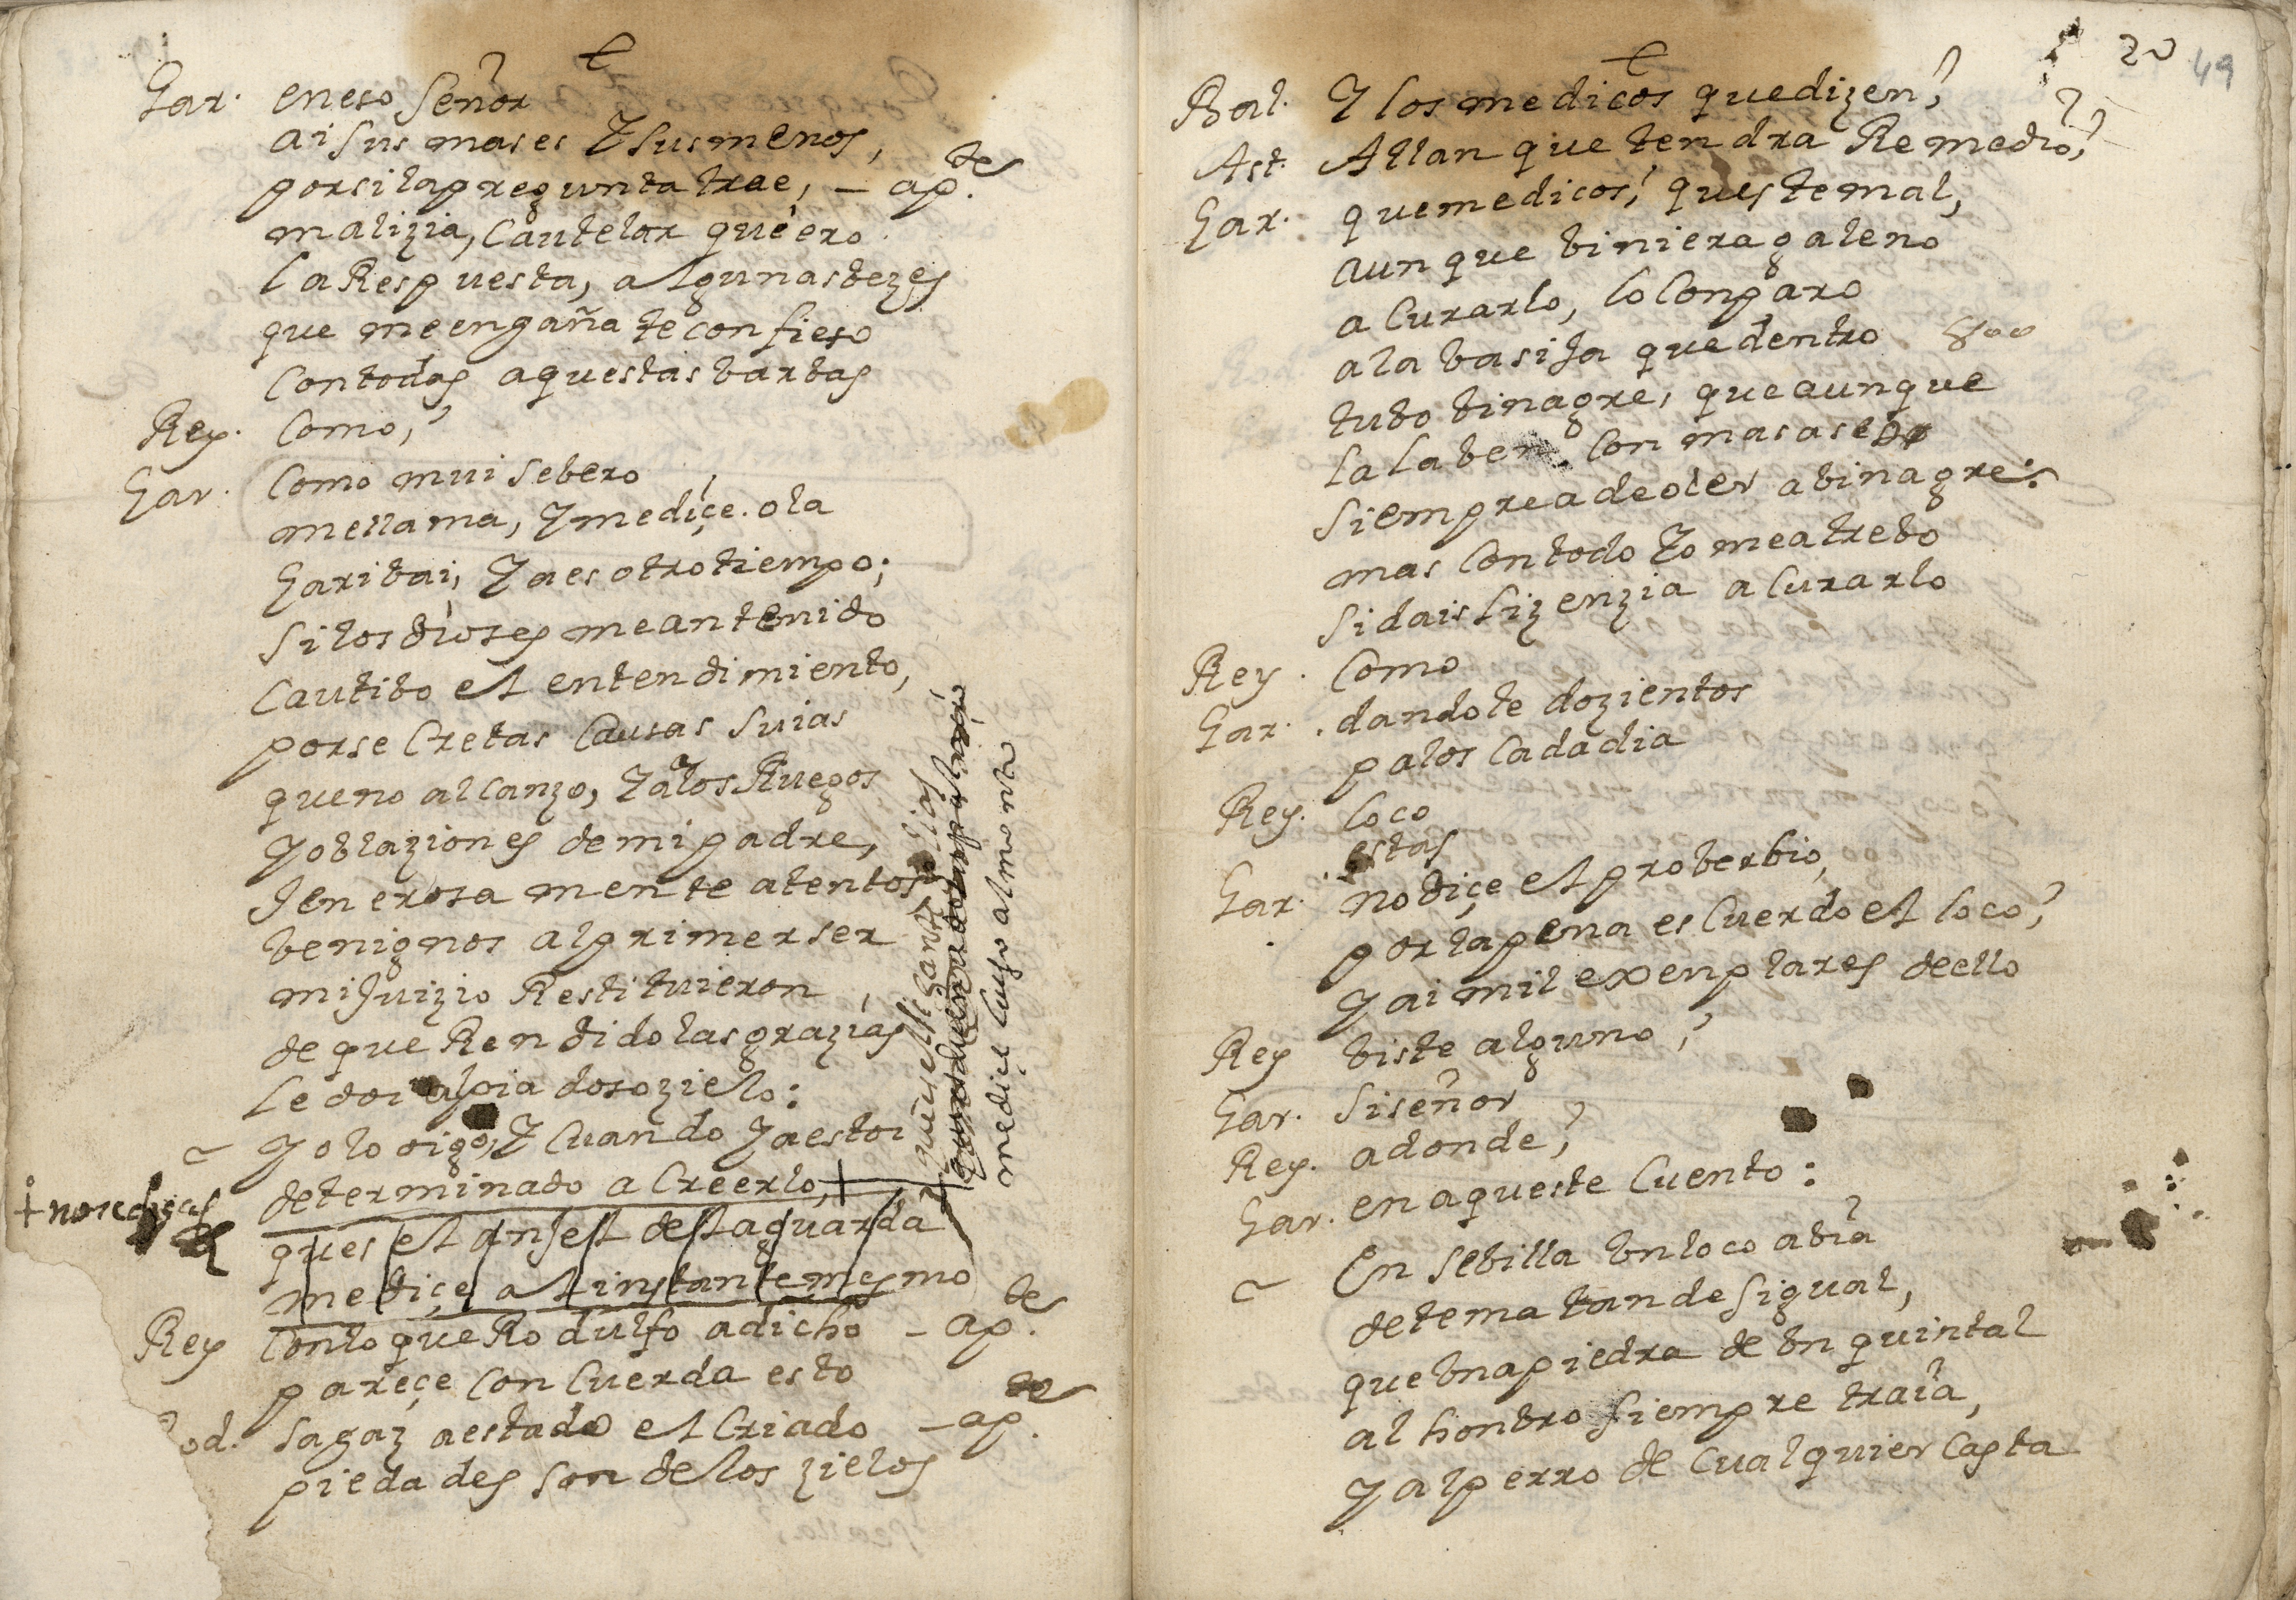 Gar. en eso Señor
ai sus mases Y sus menos,
por si la pregunta trae, – ap.te
malizia, Cautelar quero
la Respuesta, algunas bezes
que me engaña te confieso
Con todas aquestas barbas
Rey. Como,?
Gar. Como mui sebero
me llama, Y me diçe. ola
Garibai, Ya es otro tiempo;
Si los dioses me an tenido
Cautibo el entendimiento,
por se Cretas Causas Suias
que no alcanzo, Ya los Ruegos
Y oblaziones de mi padre,
Jenerosa mente atentos
benignos al primer ser
mi Juizio Restituieron,
de que Rendido las grazias
le doi al piadoso zielo:
Yo lo oigo, Y Cuando Ya estoi
determinado a Creerlo, +
+ no se digas
pues el anjel de la guarda
me diçe al instante mesmo
que el
me diçe luego al momento
Rey Con lo que Rodulfo a dicho – ap.te
pareçe Concuerda esto
Rod. Sagaz a estado el Criado – ap.te
piedades son de los zielos
20
49
Bal. Y los medicos que dizen,?
Ast. Allan que tendra Remedio,?
Gar. que medicos,? ques te mal,
aun que biniera galeno
a Curarlo, lo Conparo
a la basija que dentro
800
tubo binagre, que aunque
la laben Con mas aseo
Siempre a de oler a binagre:
mas Con todo Yo me atrebo
Si dais lizenzia a Curarlo
Rey. Como
Gar. dandote dozientos
palos Cada dia
Rey. loco
estas
Gar. no diçe el proberbio,
por la pena es Cuerdo el loco,?
Y ai mil exenplares de ello
Rey biste alguno,?
Gar. Si señor
Rey. a donde,?
Gar. en aqueste Cuento:
En Sebilla bn loco abia
de tema tan desigual,
que bna piedra de bn quintal
al honbro siempre traia,
Y al perro de Cualquier Casta